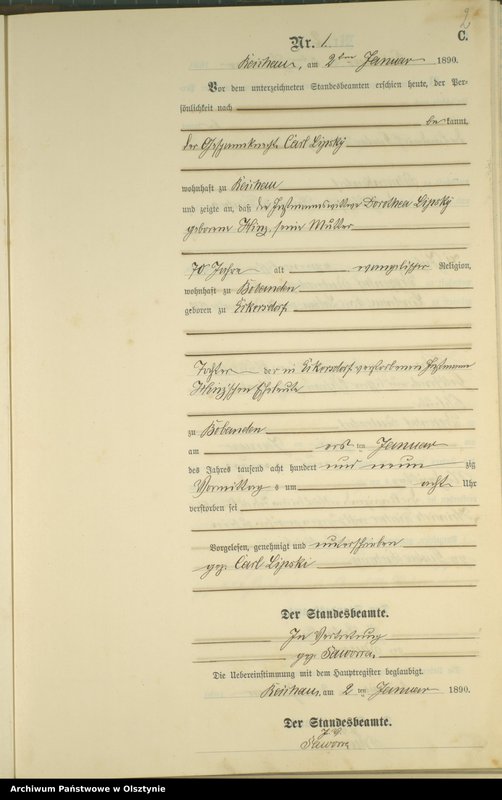 2
C.
Nr. 1.
Reichau, am 2ten Januar 1890.
Vor dem unterzeichneten Standesbeamten erschien heute, der Per-
sönlichkeit nach
be kannt,
der Gespannknecht Carl Lipsky
wohnhaft zu Reichau
und zeigte an, daß die Instmannswittwe Dorothea Lipsky
geborene Hinz, seine Mutter
70 Jahre alt evangelischer Religion,
wohnhaft zu Bobanden
geboren zu Eckersdorf
Tochter der in Eckersdorf verstorbenen Instmann
Hinz'schen Eheleute
zu Bobanden
am ersten Januar
des Jahres tausend acht hundert und neun zig
Vormittags um acht Uhr
verstorben sei
Vorgelesen, genehmigt und unterschrieben
gez. Carl Lipski
Der Standesbeamte.
In Vertretung
gez. Saworra.
Die Uebereinstimmung mit dem Hauptregister beglaubigt.
Reichau, am 2ten Januar 1890.
Der Standesbeamte.
J. V.
Saworra
Archiwum Państwowe w Olsztynie